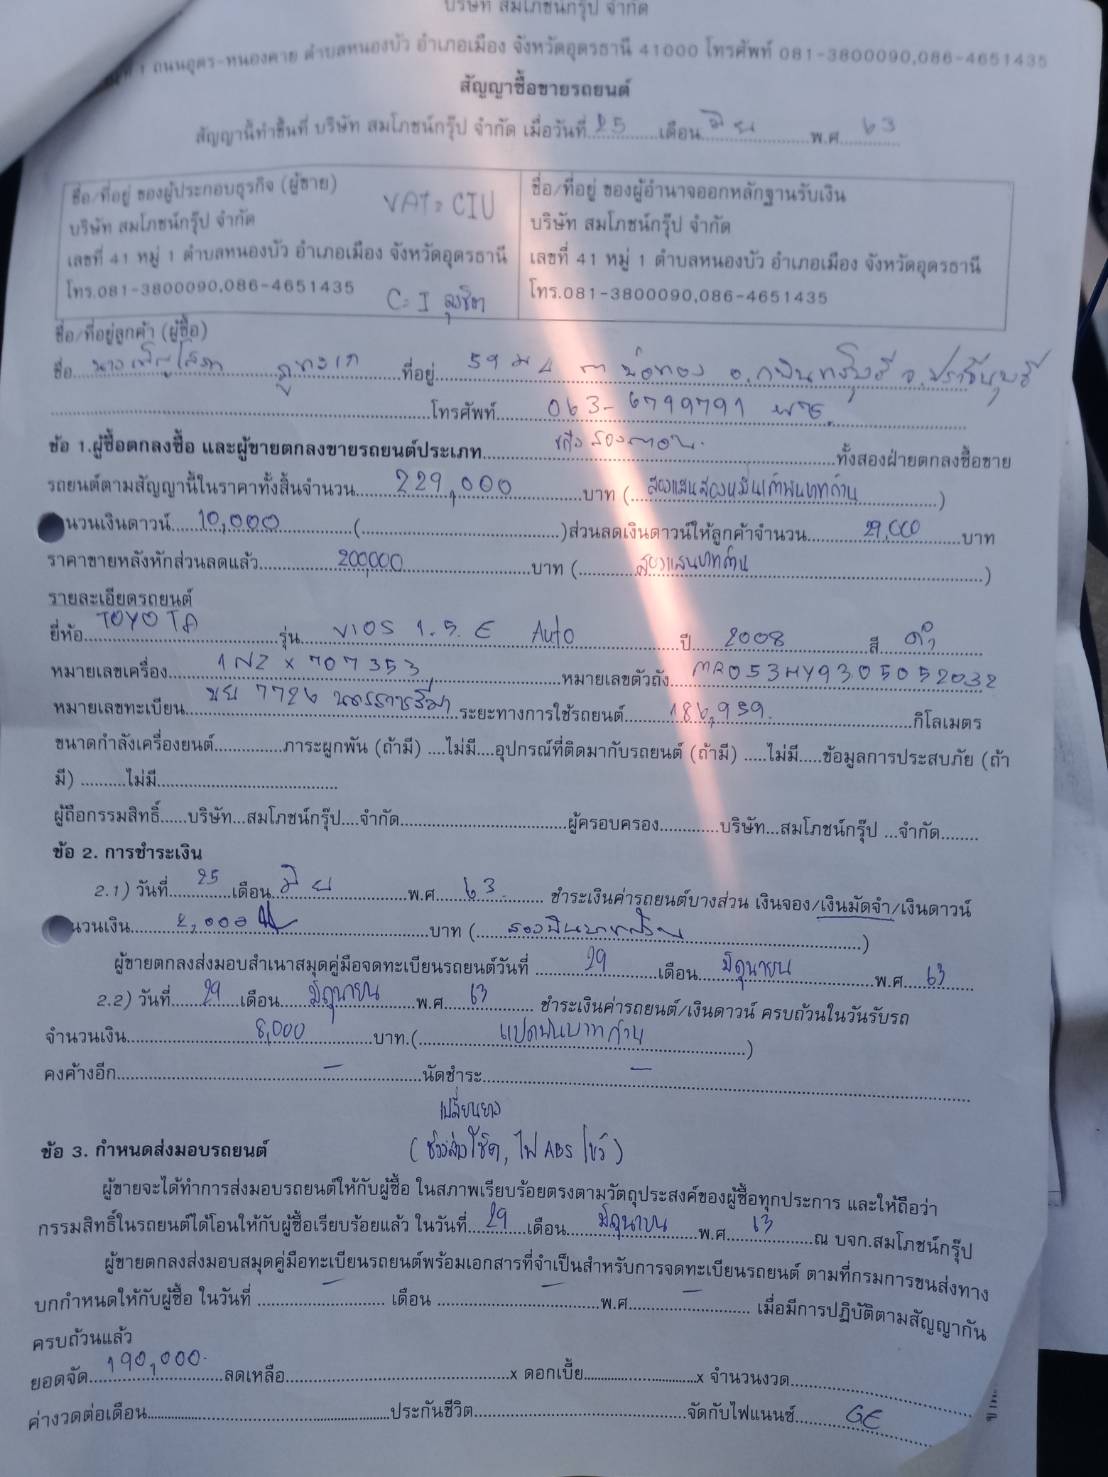 บริษัท สมโภชน์กรุ๊ป จำกัด
1 ถนนอุดร-หนองคาย ตำบลหนองบัว อำเภอเมือง จังหวัดอุดรธานี 41000 โทรศัพท์ 081-3800090,086-4651435
สัญญาซื้อขายรถยนต์
สัญญานี้ทำขึ้นที่ บริษัท สมโภชน์กรุ๊ป จำกัด เมื่อวันที่ 25 เดือน มิย พ.ศ. 63
ชื่อ/ที่อยู่ ของผู้ประกอบธุรกิจ (ผู้ขาย)
VAT = CIU
บริษัท สมโภชน์กรุ๊ป จำกัด
เลขที่ 41 หมู่ 1 ตำบลหนองบัว อำเภอเมือง จังหวัดอุดรธานี
โทร.081-3800090,086-4651435
C = I
ชื่อ/ที่อยู่ ของผู้อำนาจออกหลักฐานรับเงิน
บริษัท สมโภชน์กรุ๊ป จำกัด
เลขที่ 41 หมู่ 1 ตำบลหนองบัว อำเภอเมือง จังหวัดอุดรธานี
โทร.081-3800090,086-4651435
ชื่อ/ที่อยู่ลูกค้า (ผู้ซื้อ)
ชื่อ นาง ที่อยู่ 59 ม 4 ต บ่อทอง อ.กบินทร์บุรี จ.ปราจีนบุรี
โทรศัพท์ 063-6799791
ข้อ 1.ผู้ซื้อตกลงซื้อ และผู้ขายตกลงขายรถยนต์ประเภท เก๋งสองตอน ทั้งสองฝ่ายตกลงซื้อขาย
รถยนต์ตามสัญญานี้ในราคาทั้งสิ้นจำนวน 229,000 บาท (สองแสนสองหมื่นเก้าพันบาทถ้วน)
นวนเงินดาวน์ 10,000 ( )ส่วนลดเงินดาวน์ให้ลูกค้าจำนวน 29,000 บาท
ราคาขายหลังหักส่วนลดแล้ว 200,000 บาท (สองแสนบาทถ้วน)
รายละเอียดรถยนต์
ยี่ห้อ TOYOTA รุ่น VIOS 1.5.E Auto ปี 2008 สี ดำ
หมายเลขเครื่อง 1NZ X707353 หมายเลขตัวถัง MR053HY9305052032
หมายเลขทะเบียน 7726 นครราชสีมา ระยะทางการใช้รถยนต์ 186,959. กิโลเมตร
ขนาดกำลังเครื่องยนต์...............ภาระผูกพัน (ถ้ามี) ....ไม่มี....อุปกรณ์ที่ติดมากับรถยนต์ (ถ้ามี) .....ไม่มี.....ข้อมูลการประสบภัย (ถ้า
มี) .........ไม่มี.......................................
ผู้ถือกรรมสิทธิ์......บริษัท...สมโภชน์กรุ๊ป....จำกัด.....................................ผู้ครอบครอง.............บริษัท...สมโภชน์กรุ๊ป ...จำกัด........
ข้อ 2. การชำระเงิน
2.1) วันที่ 25 เดือน มิย พ.ศ. 63 ชำระเงินค่ารถยนต์บางส่วน เงินจอง/เงินมัดจำ/เงินดาวน์
นวนเงิน 2,000 บาท (สองพันบาทถ้วน)
ผู้ขายตกลงส่งมอบสำเนาสมุดคู่มือจดทะเบียนรถยนต์วันที่ 29 เดือน มิถุนายน พ.ศ. 63
2.2) วันที่ 29 เดือน มิถุนายน พ.ศ. 63 ชำระเงินค่ารถยนต์/เงินดาวน์ ครบถ้วนในวันรับรถ
จำนวนเงิน 8,000 บาท.(แปดพันบาทถ้วน)
คงค้างอีก - นัดชำระ -
เปลี่ยนยาง
ข้อ 3. กำหนดส่งมอบรถยนต์ (ช่วงล่าง, ไฟ ABS โชว์)
ผู้ขายจะได้ทำการส่งมอบรถยนต์ให้กับผู้ซื้อ ในสภาพเรียบร้อยตรงตามวัตถุประสงค์ของผู้ซื้อทุกประการ และให้ถือว่า
กรรมสิทธิ์ในรถยนต์ได้โอนให้กับผู้ซื้อเรียบร้อยแล้ว ในวันที่ 29 เดือน มิถุนายน พ.ศ. 63 ณ บจก.สมโภชน์กรุ๊ป
ผู้ขายตกลงส่งมอบสมุดคู่มือทะเบียนรถยนต์พร้อมเอกสารที่จำเป็นสำหรับการจดทะเบียนรถยนต์ ตามที่กรมการขนส่งทาง
บกกำหนดให้กับผู้ซื้อ ในวันที่ - เดือน - พ.ศ. - เมื่อมีการปฏิบัติตามสัญญากัน
ครบถ้วนแล้ว
ยอดจัด 190,000. ลดเหลือ x ดอกเบี้ย x จำนวนงวด
ค่างวดต่อเดือน ประกันชีวิต จัดกับไฟแนนซ์ GE